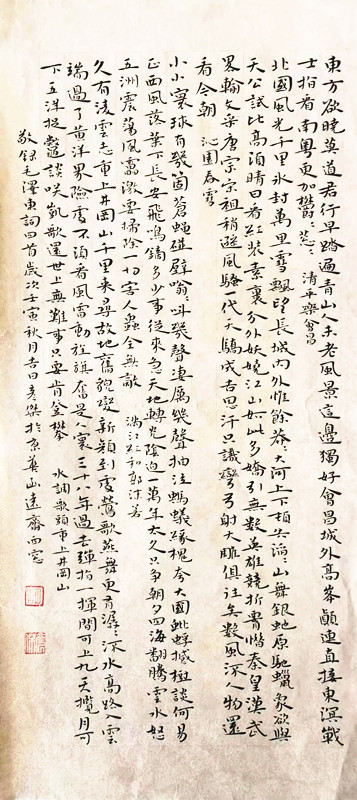 東方欲曉莫道君行早踏遍青山人未老風景這邊獨好會昌城外高峯顛連直接東溟戰
士指看南粵更加鬱〻葱〻 清平樂會昌
北國風光千里冰封萬里雪飄望長城内外惟餘莽〻大河上下頓失滔〻山舞銀蛇原馳蠟象欲與
天公試比高須晴日看紅裝素裹分外妖嬈江山如此多嬌引無數英雄競折腰惜秦皇漢武
畧輸文采唐宗宋祖稍遜風騷一代天驕成吉思汗只識彎弓射大雕俱往矣數風流人物還
看今朝 沁園春雪
小小寰球有幾箇蒼蠅碰壁嗡〻叫幾聲淒厲幾聲抽泣螞蟻緣槐夸大國蚍蜉撼樹談何易
正西風落葉下長安飛鳴鏑多少事從來急天地轉光陰迫一萬年太久只争朝夕四海翻騰雲水怒
五洲震蕩風雷激要掃除一切害人蟲全無敵 滿江紅和郭沫若
久有凌雲志重上井岡山千里來尋故地舊貌變新顏到處鶯歌燕舞更有潺〻流水高路入雲
端過了黄洋界險處不須看風雷動旌旗奮是人寰三十八年過去彈指一揮間可上九天攬月可
下五洋捉鱉談咲凱歌還世上無難事只要肯登攀 水調歌頭重上井岡山
敬錄毛澤東詞四首歲次壬寅秋月吉日彥傑於京英山遠齋西窓